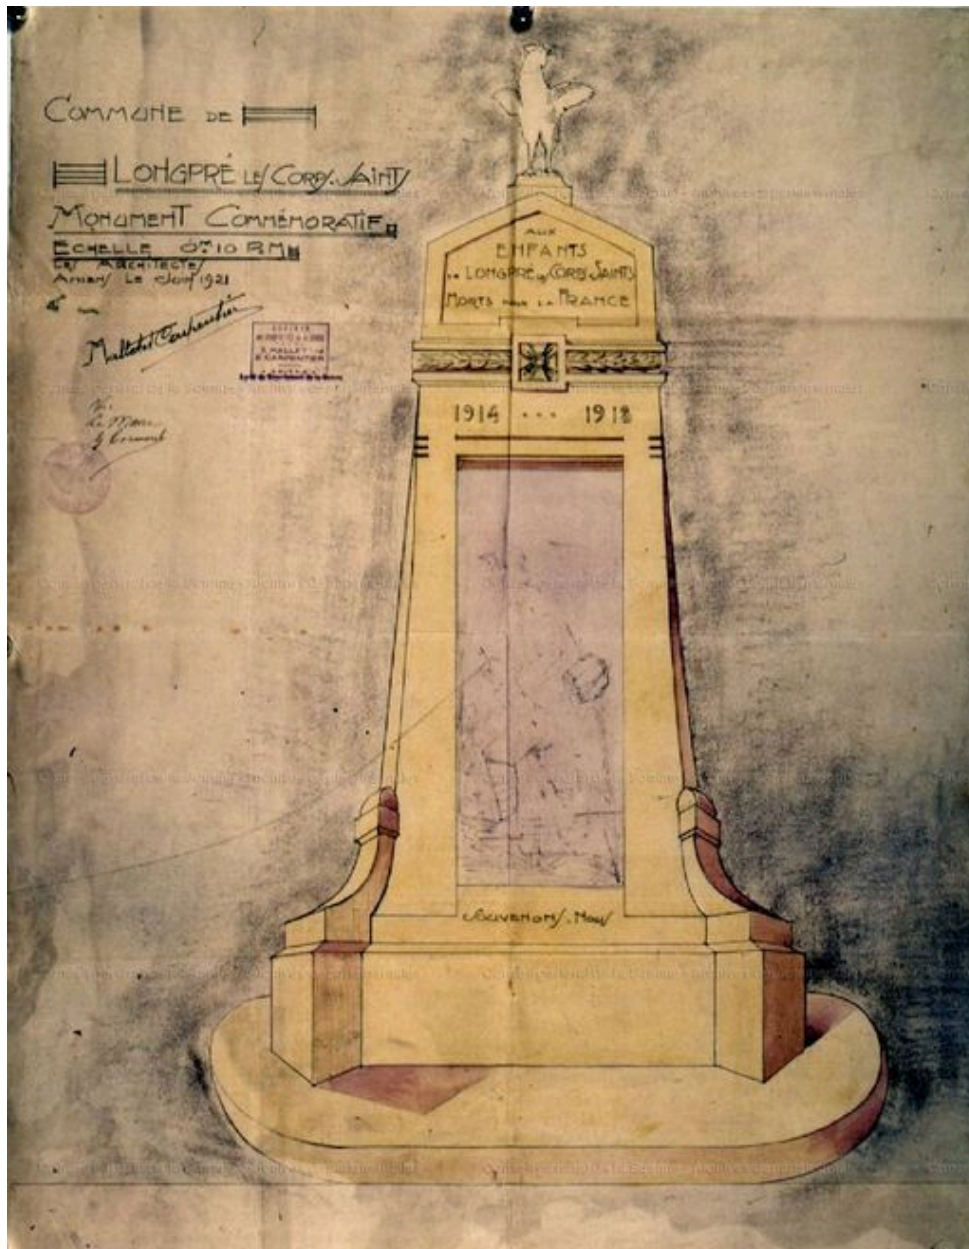 COMMUNE DE
LONGPRÉ LES CORPS. SAINTS
MONUMENT COMMÉMORATIF
ECHELLE 0m10 P.M
LES ARCHITECTES
AMIENS LE Juin 1921
Mallet et Carpentier
E. CARPENTIER
Vu
Le Maire
AUX
ENFANTS
DE LONGPRÉ LES CORPS SAINTS
MORTS POUR LA FRANCE
1914 ... 1918
SOUVENONS. NOUS